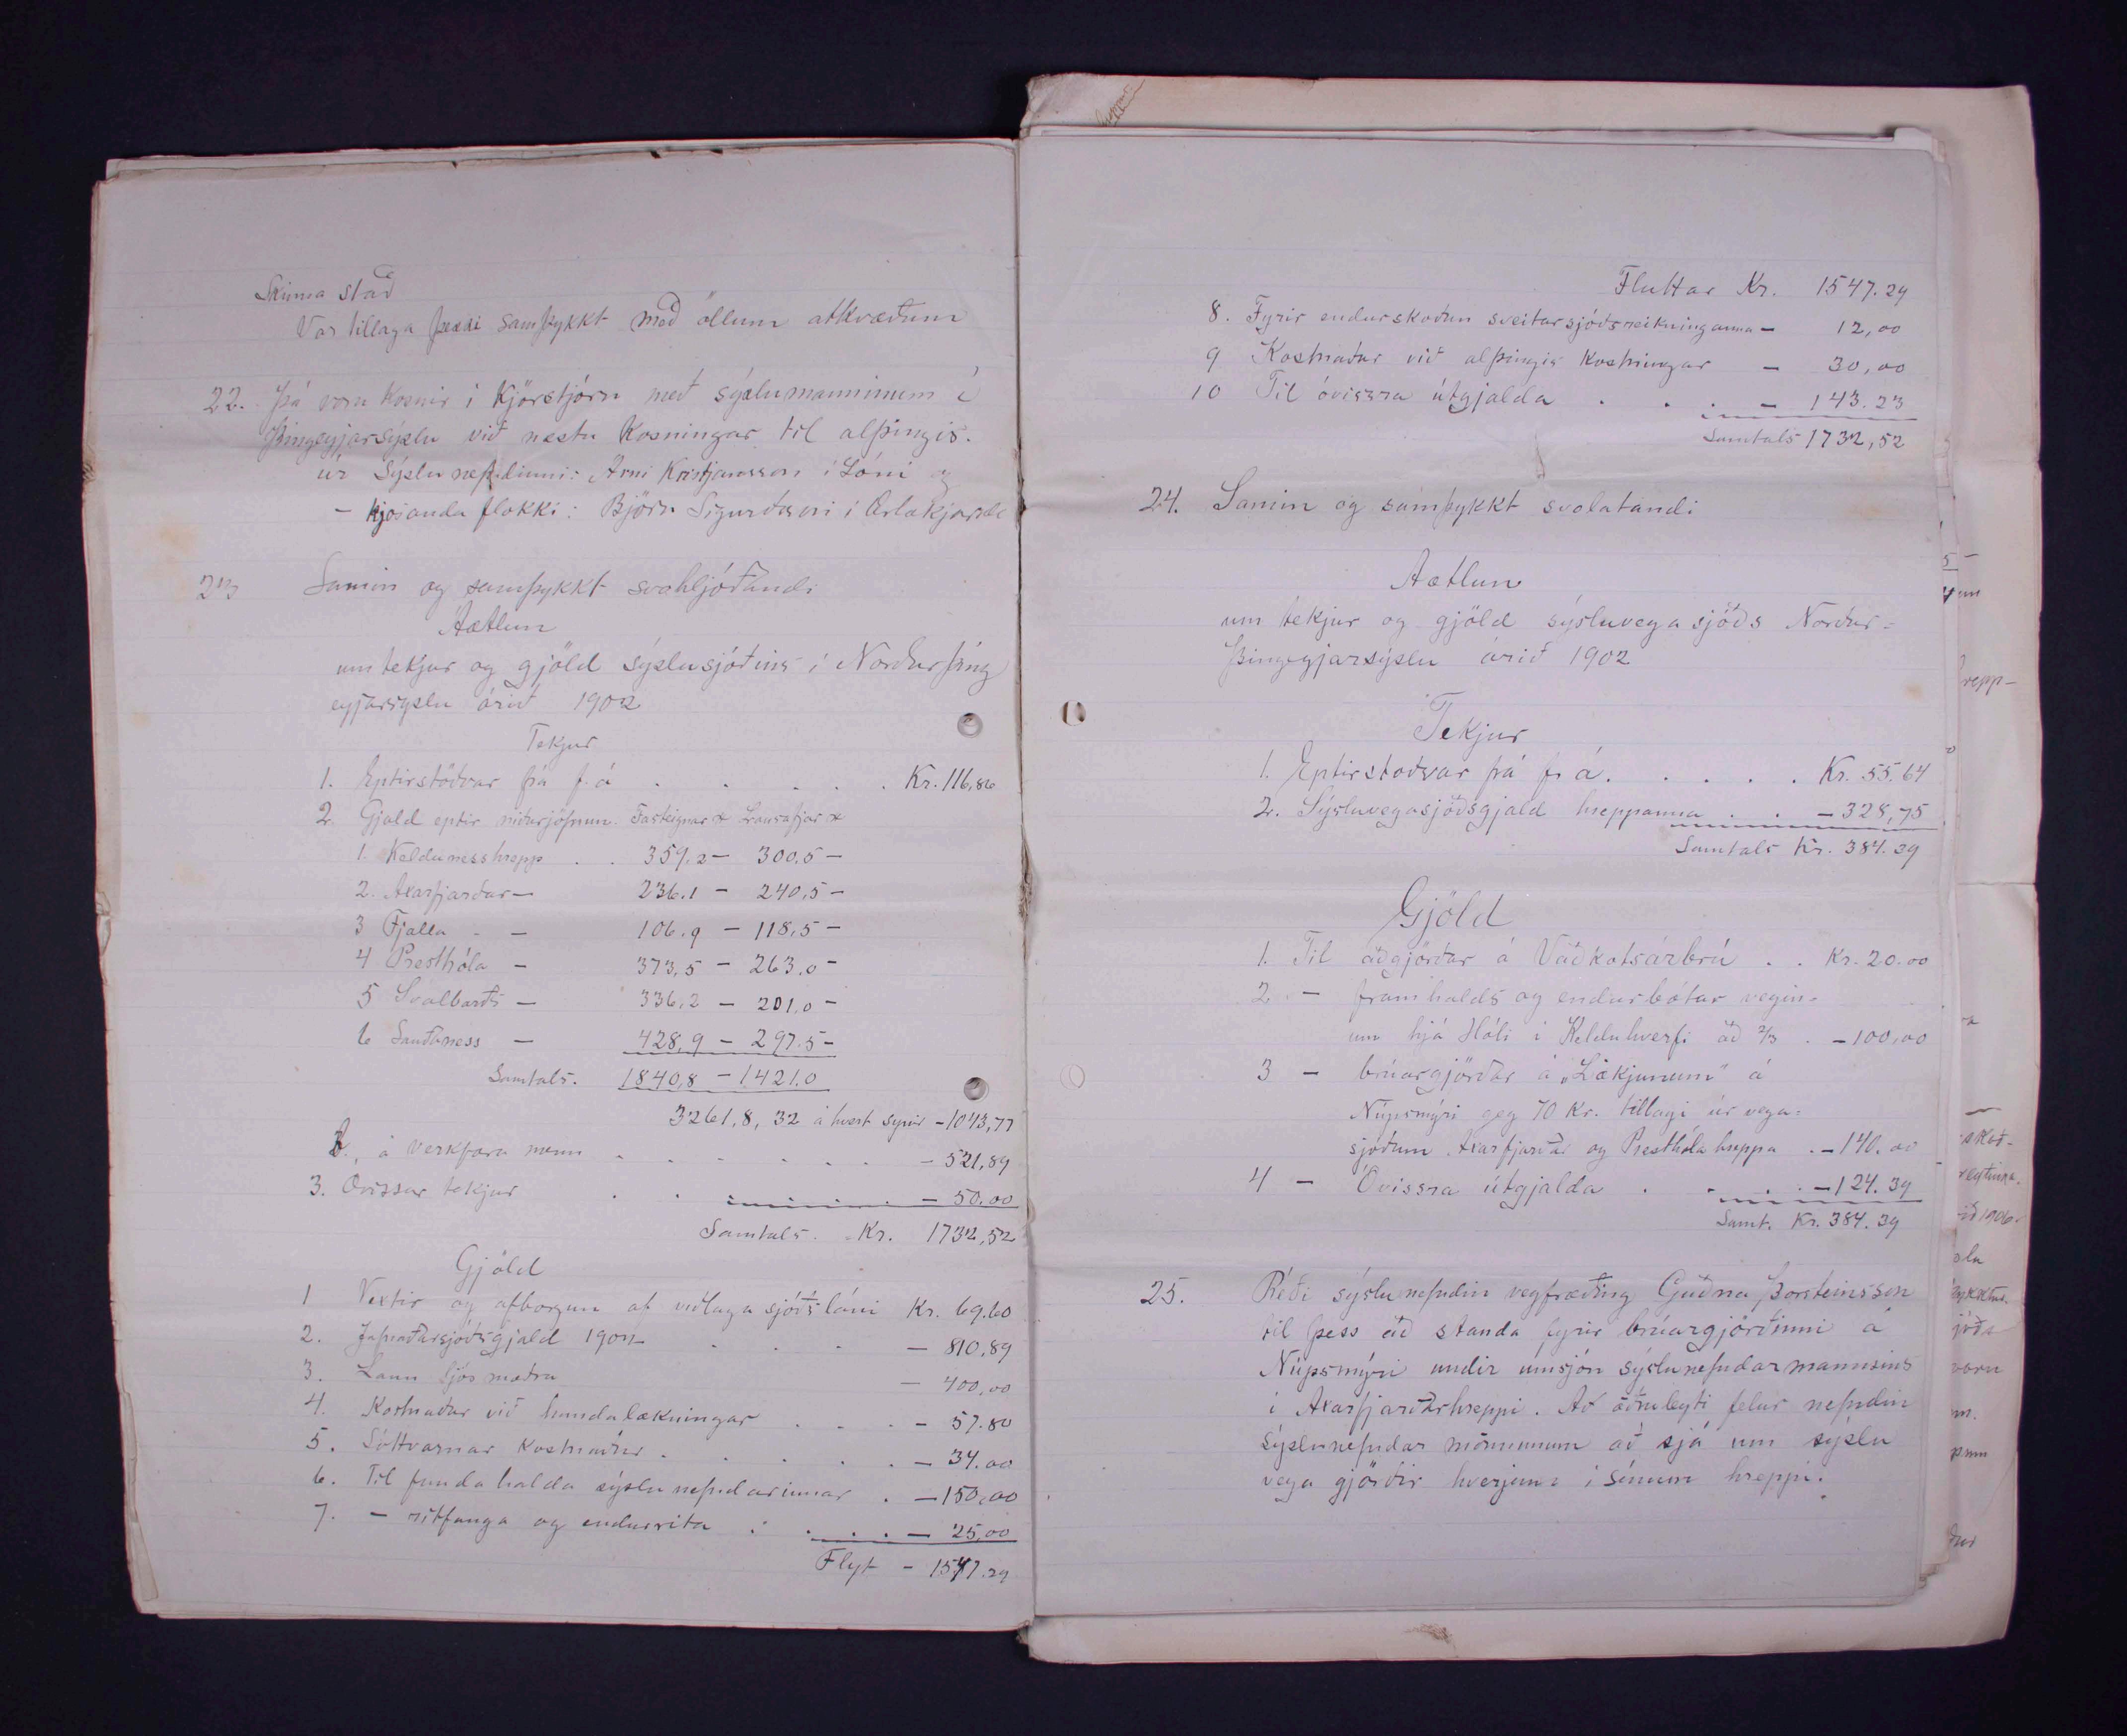 Skinnastað
Var tillaga þessi samþykkt með öllum atkvæðum
22. Þá voru kosnir i Kjörstjórn með sýslumanninum í
Þingeyjarsýslu við næstu Kosningar til alþingis.
úr Sýslunefndinni: Árni Kristjansson i Lóni og
- kjósanda flokki: Björn Sigurðsson i Ærlækjarseli
23 Samin og samþykkt svohljóðandi
Áætlun
um tekjur og gjöld sýslusjóðins i Norðurþing
eyjarsýslu árið 1902
Tekjur
1. Eptirstöðvar frá f. á . . . . . . Kr. 116,86
2. Gjald eptir niðurjöfnun. Fasteignar x Lausafjár x
1. Kelduness hrepp . . 359,2 - 300,5 -
2. Axarfjarðar - 236.1 - 240,5 -
3 Fjalla - - 106.9 - 118,5 -
4 Presthóla - 373,5 - 263.0 -
5 Svalbarðs - 336,2 - 201,0 -
6 Sauðaness - 428,9 - 297.5 -
Samtals. 1840,8 - 1421.0
3261,8, 32 á hvert - 1043,77
b., á verkfæra menn . . . . . . . - 521,89
3. Óvissar tekjur . . . . . . . - 50,00
Samtals. Kr. 1732,52
Gjöld
1 Vextir og afborgun af viðlaga sjóðs láni Kr. 69.60
2. Jafnaðarsjóðsgjald 1902 . . . - 810,89
3. Laun ljósmæðra - 400,00
4. Kostnaður við hundalækningar . . . - 57.80
5. Sóttvarnar kostnaður . . . . . - 34.00
6. Til fundahalda sýslunefndarinnar . - 150,00
7. - ritfanga og endurrita . . . . . - 25,00
Flyt - 1547.29
Fluttar Kr. 1547.29
8. Fyrir endurskoðun sveitarsjóðsreikninganna - 12,00
9 Kostnaður við alþingis kosningar - 30,00
10 Til óvissra útgjalda . . . - 143.23
Samtals 1732,52
24. Samin og samþykkt svolatandi
Aætlun
um tekjur og gjöld sýsluvegasjóðs Norður=
Þingeyjarsýslu árið 1902
Tekjur
1. Eptirstoðvar frá f. á. . . . . . Kr. 55,64
2. Sýsluvegasjóðsgjald hreppanna . . - 328,75
Samtals Kr. 384.39
Gjöld
1. Til aðgjörðar á Vaðkotsárbrú . . Kr. 20.00
2. - framhalds og endurbótar vegin=
um hjá Hóli i Kelduhverfi að 2/3 . - 100,00
3 - brúargjörðar á „Lækjunum" á
Núpsmýri geg 70 Kr. tillagi úr vega=
sjóðum Axarfjarðar og Presthóla hreppa . - 140.00
4 - Óvissra útgjalda . . . . - 124.39
Samt. Kr. 384.39
25. Réði sýslunefndin vegfræðing Guðna Þorsteinsson
til þess að standa fyrir brúargjörðinni á
Núpsmýri undir umsjón sýslunefndarmannsins
i Axarfjarðarhreppi. Að öðruleyti felur nefndin
Sýslunefndar mönnunum að sjá um sýslu
vega gjörðir hverjum i sínum hreppi.